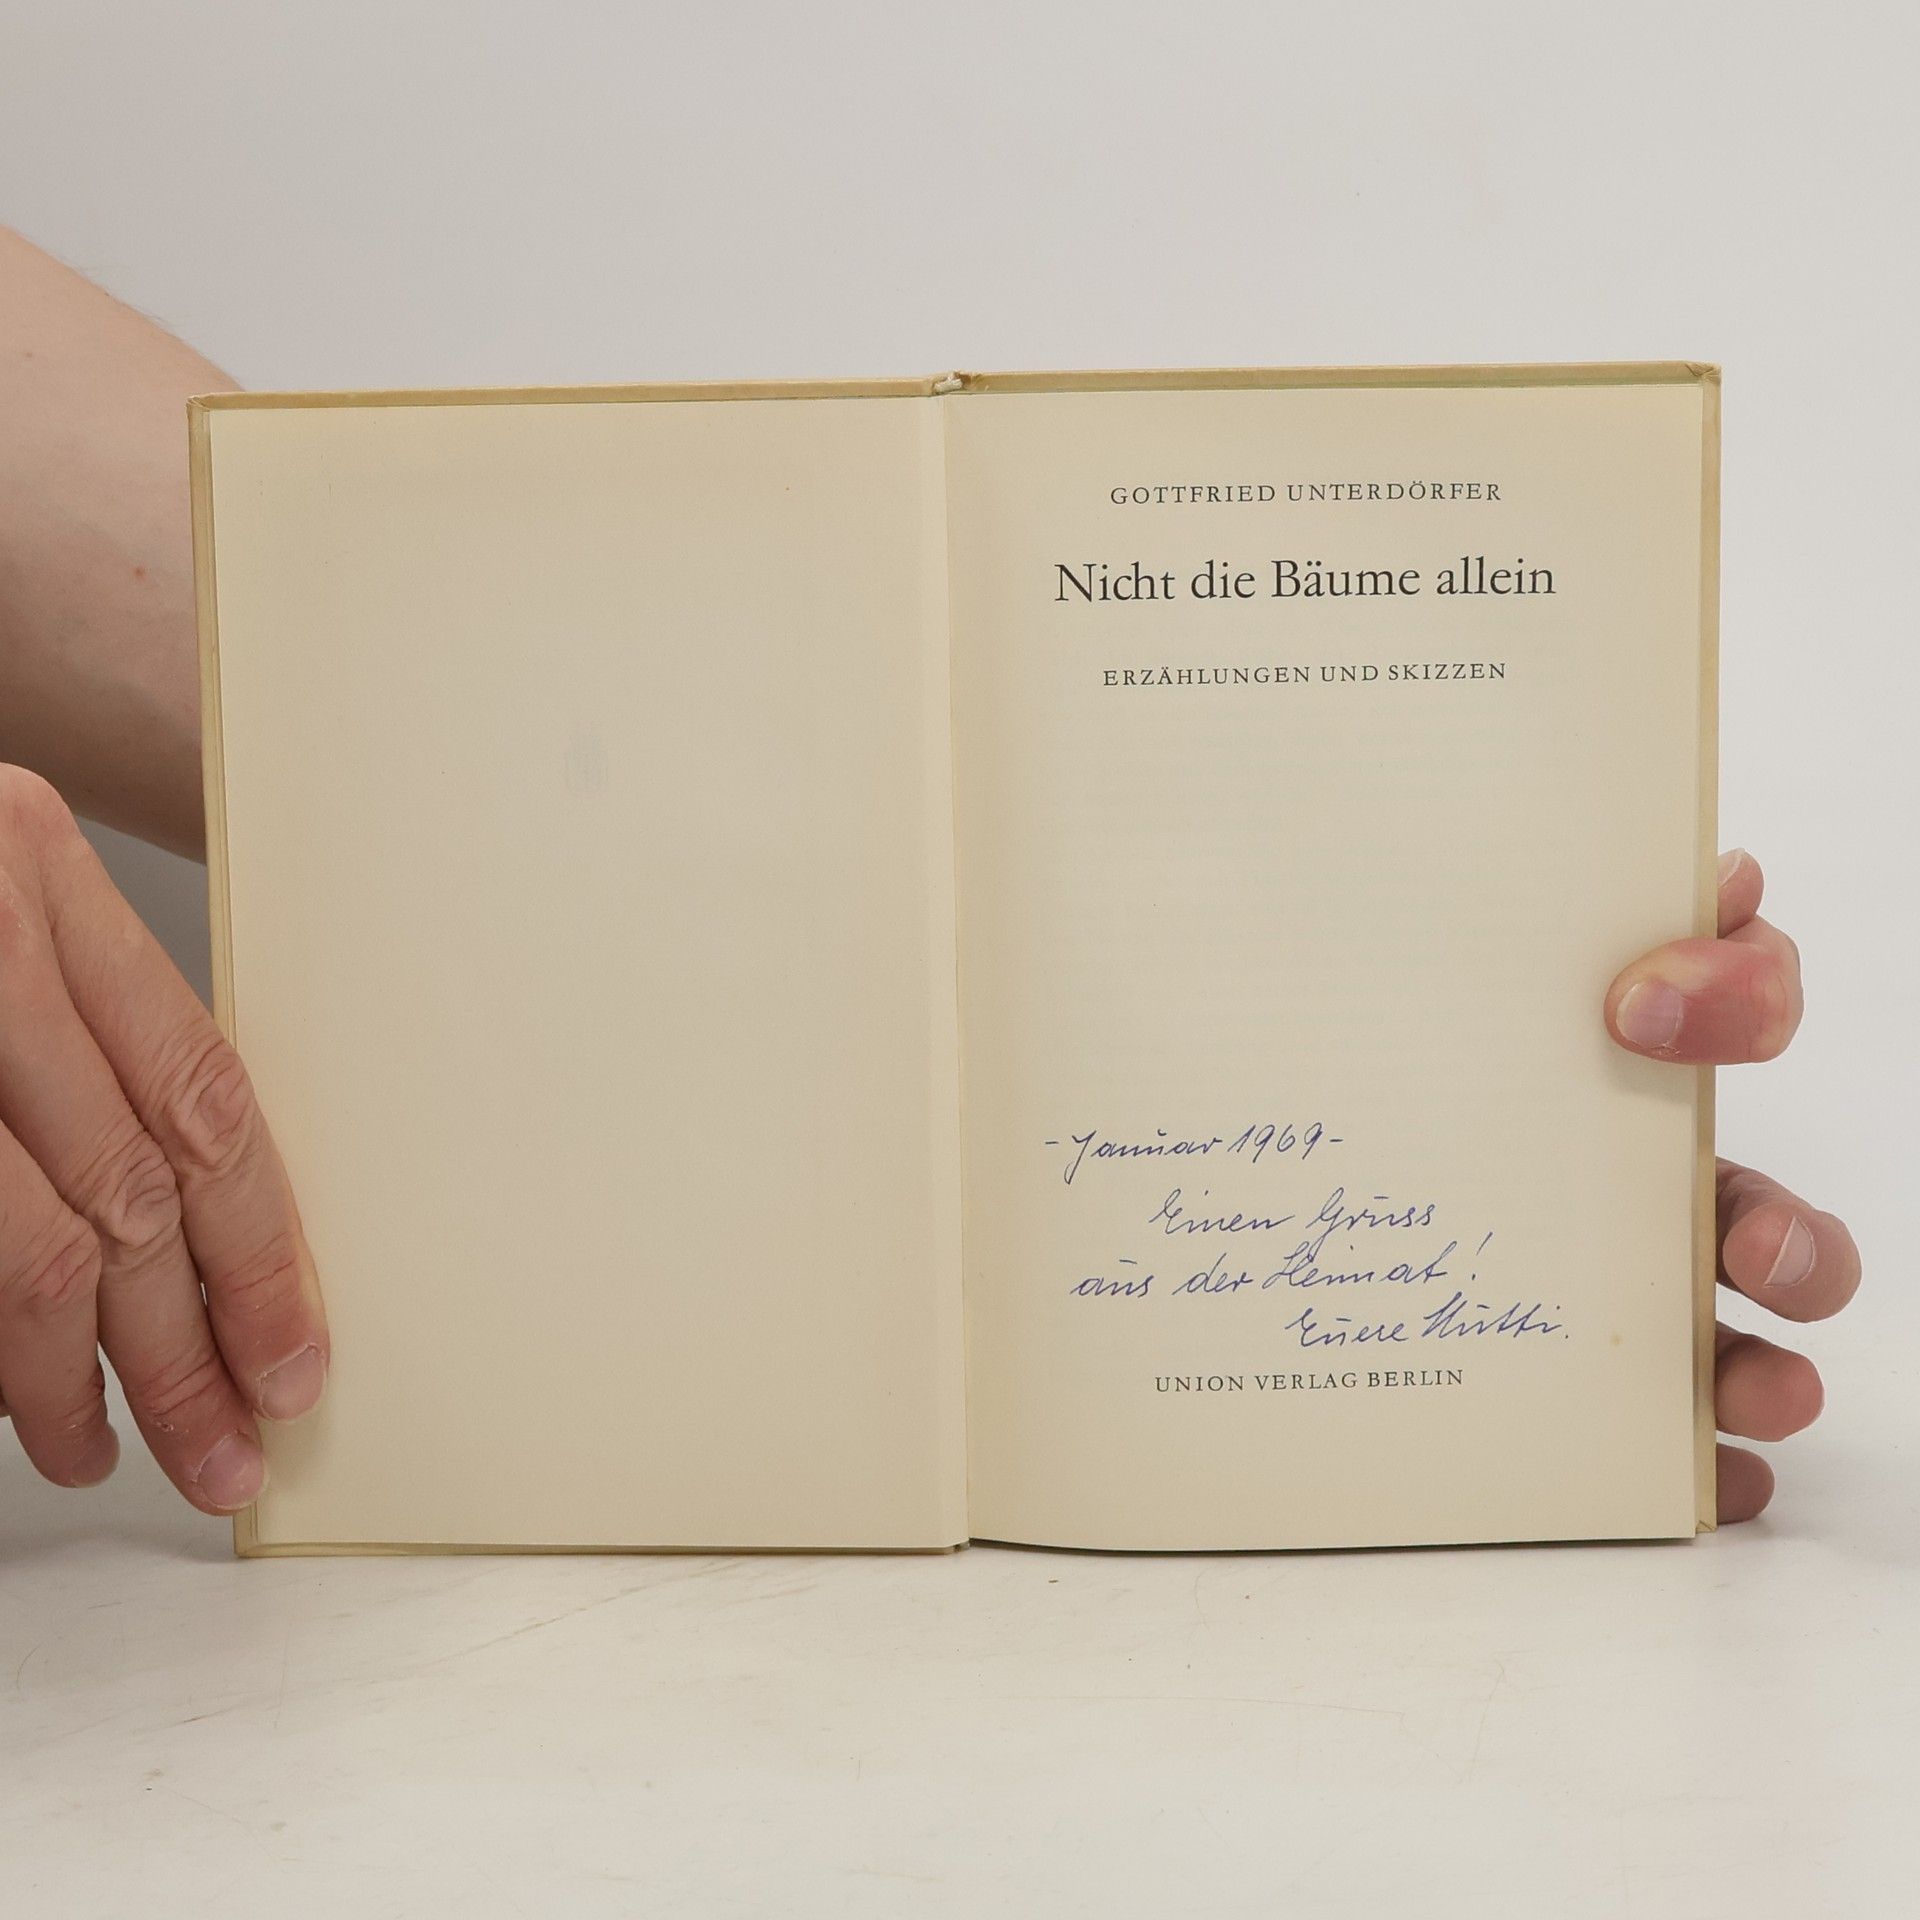 GOTTFRIED UNTERDÖRFER
Nicht die Bäume allein
ERZÄHLUNGEN UND SKIZZEN
- Januar 1969 -
Einen Gruss
aus der Heimat!
Euere Mutti.
UNION VERLAG BERLIN